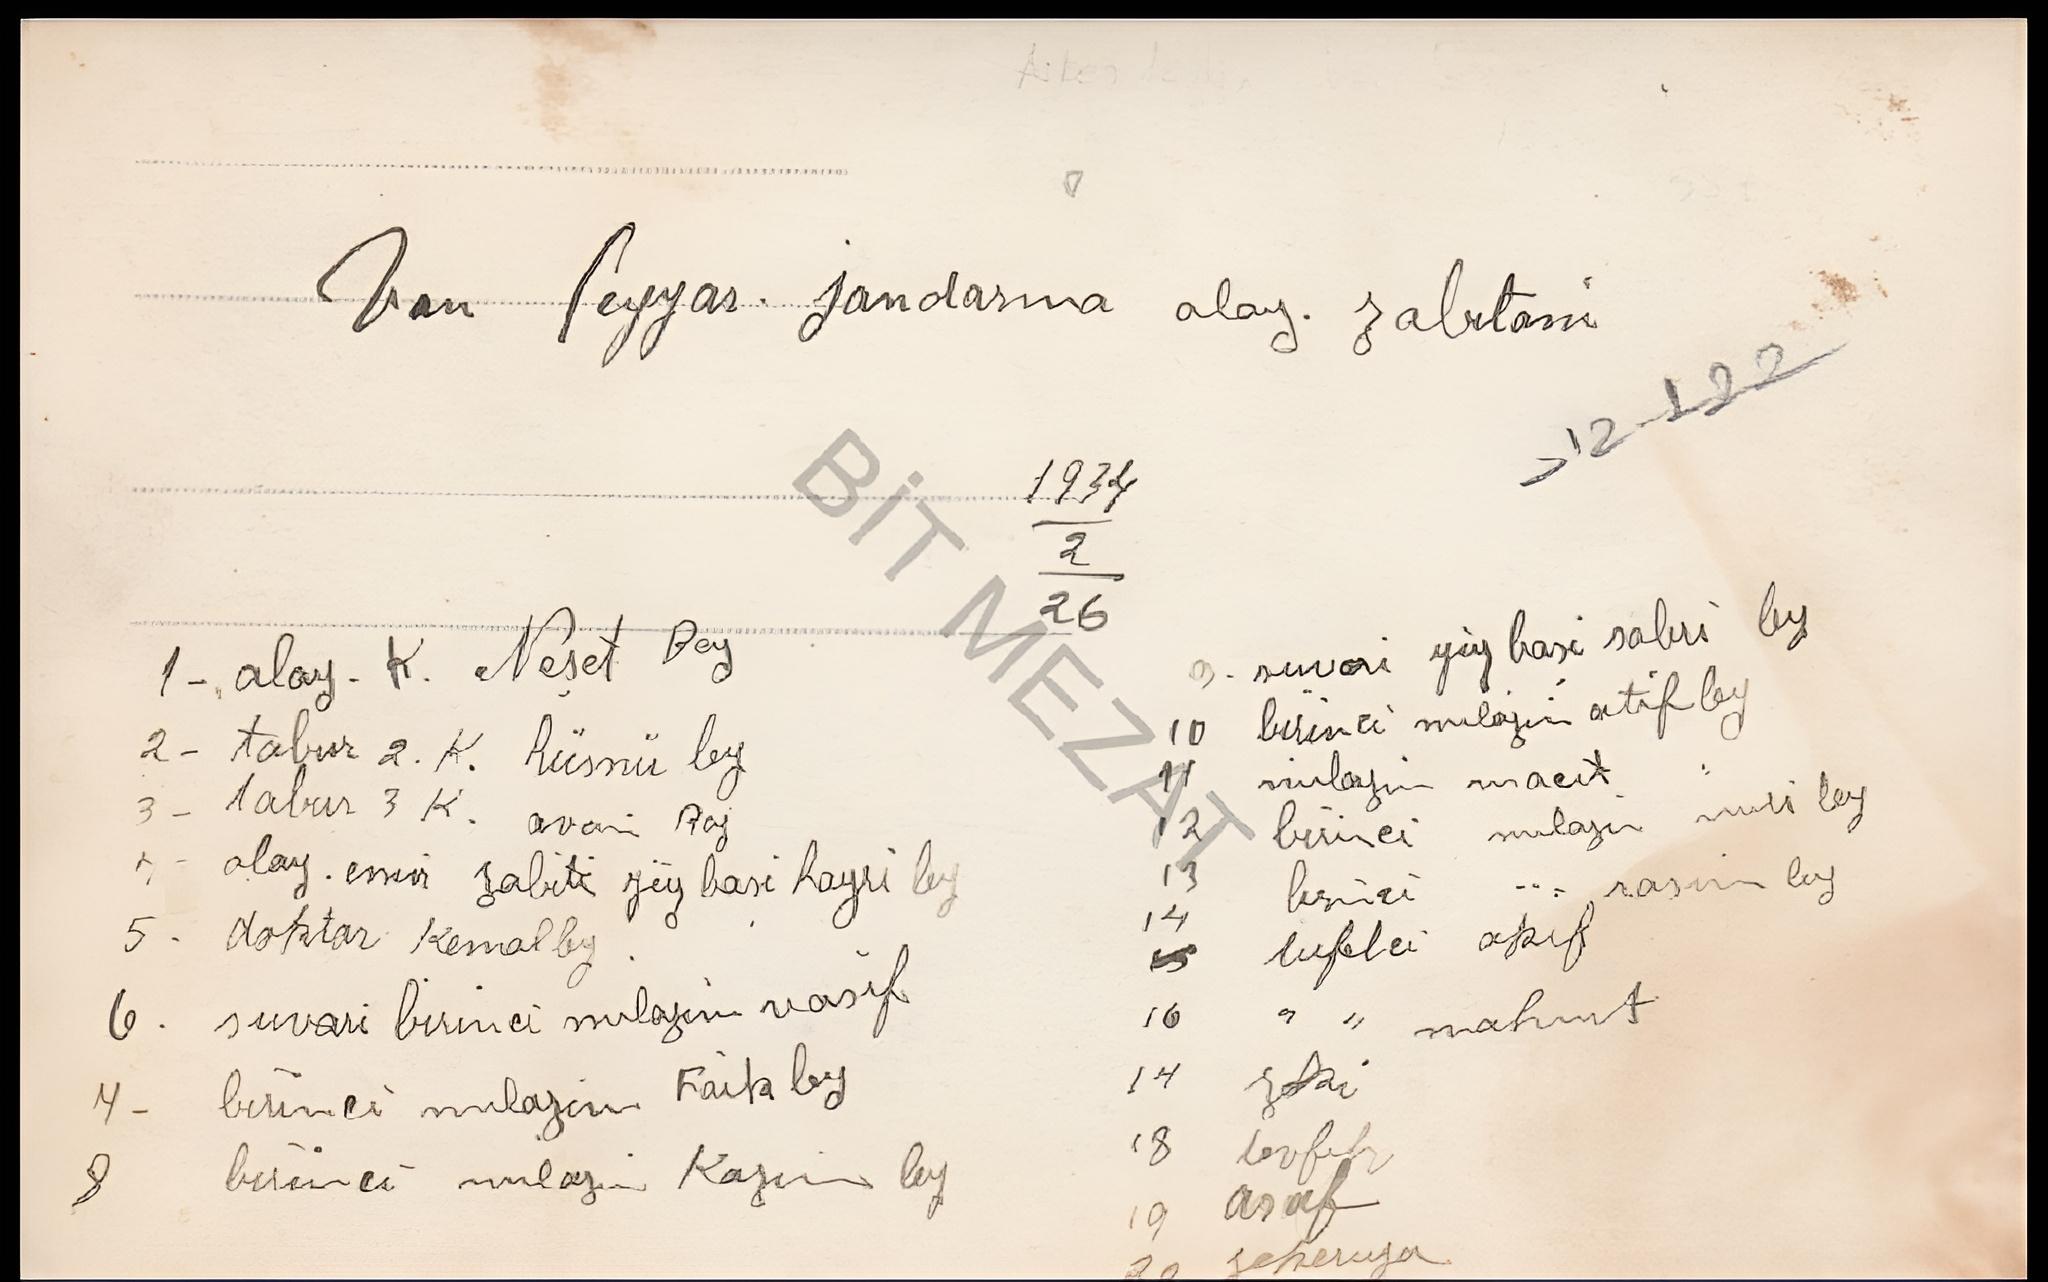 Van Seyyar. jandarma alay. zabitani
12-122
1934
2
26
1 - alay. K. Neşet Bey
2 - tabur 2. K. hüsnü bey
3 - tabur 3 K. avni Bey
alay. emir zabiti yüz basi hayri bey
5 - doktar Kemal bey
6. suvari birinci mulazim vasif
7 - birinci mulazim Faik bey
8 birinci mulazim Kazim bey
9. suvari yüz basi sabri bey
10 birinci mulazim atif bey
11 mulazim macit "
12 birinci mulazim nuri bey
13 birinci " " rasim bey
14
15 tufekci akif
16 " " mahmut
17 zeki
18 tevfik
19 asaf
20 zekeriya
BİT MEZAT